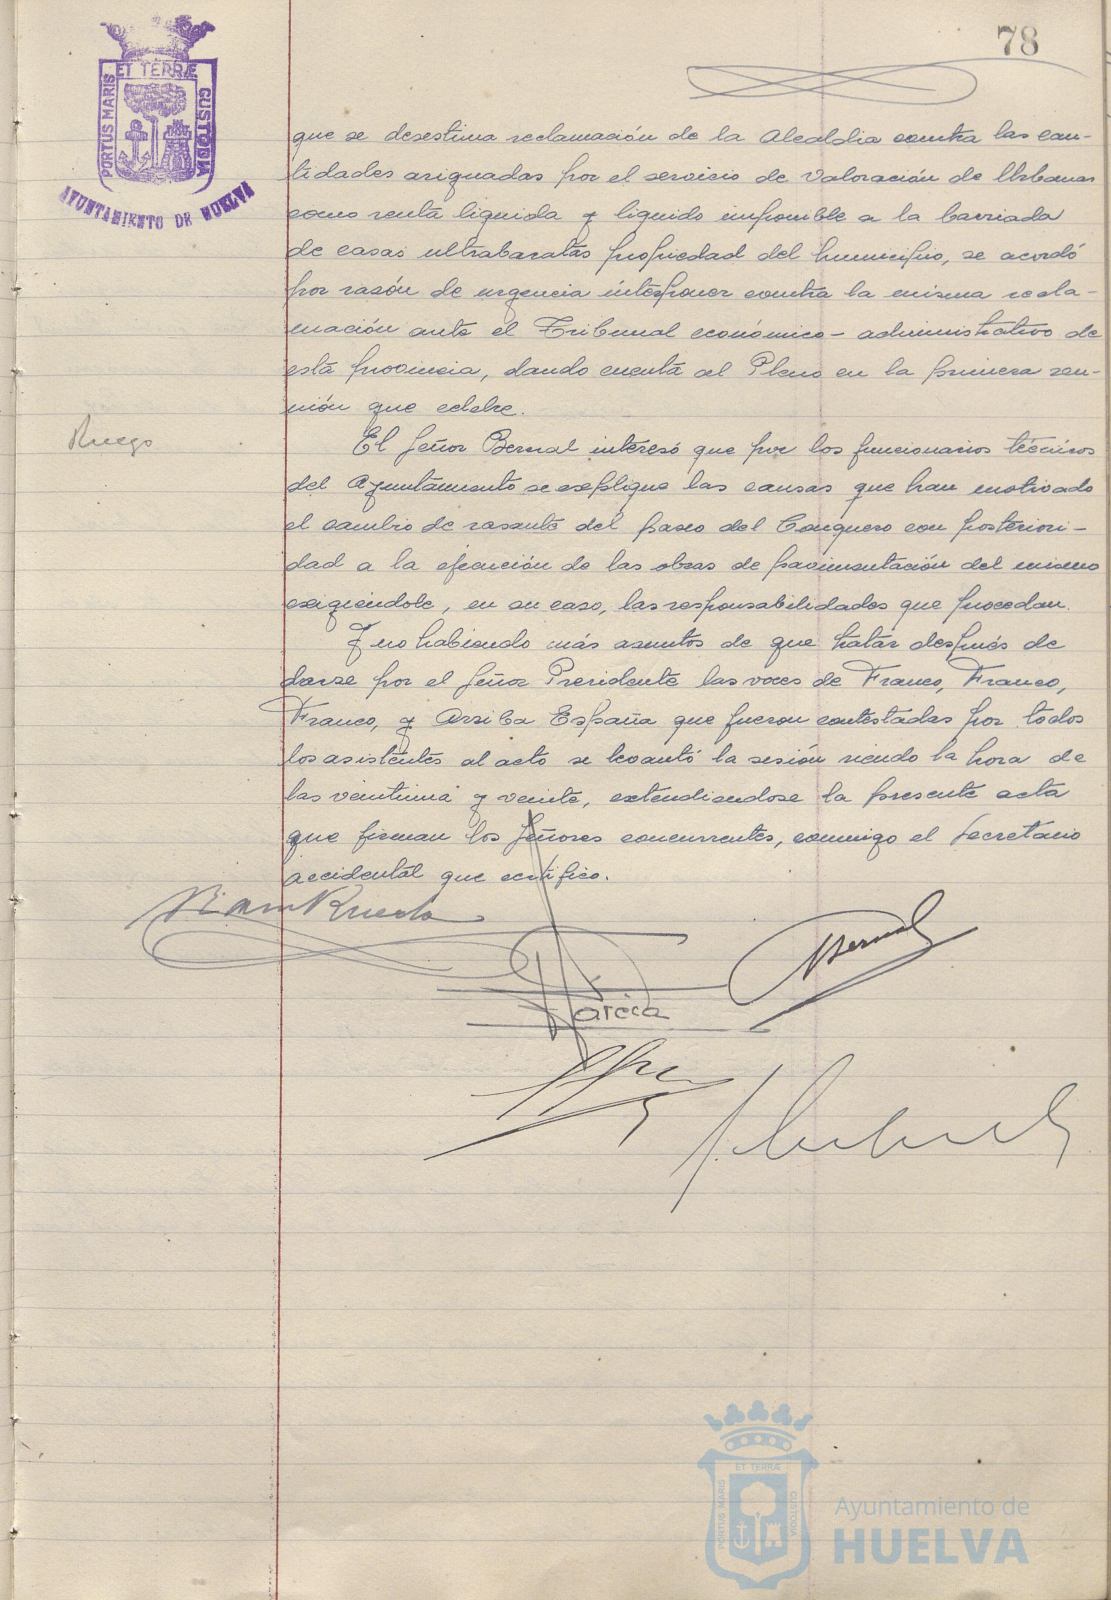 78
PORTUS MARIS ET TERRÆ CUSTODIA
AYUNTAMIENTO DE HUELVA
que se desestima reclamación de la Alcaldia contra las can-
tidades asignadas por el servicio de Valoración de Urbanas
como renta liquida y liquido imponible a la barriada
de casas ultrabaratas propiedad del municipio, se acordó
por razón de urgencia interponer contra la misma recla-
mación ante el Tribunal económico-administrativo de
está provincia, dando cuenta al Pleno en la primera reu-
nión que celebre.
Ruego
El Señor Bernal interesó que por los funcionarios técnicos
del Ayuntamiento se explique las causas que han motivado
el cambio de rasante del paseo del Conquero con posteriori-
dad a la ejecución de las obras de pavimentación del mismo
exigiéndole, en su caso, las responsabilidades que procedan.
Y no habiendo más asuntos de que tratar después de
darse por el Señor Presidente las voces de Franco, Franco,
Franco, y Arriba España que fueron contestadas por todos
los asistentes al acto se levantó la sesión siendo la hora de
las veintiuna y veinte, extendiendose la presente acta
que firman los Señores concurrentes, conmigo el Secretario
accidental que certifico.
Bernal
Garcia
PORTUS MARIS ET TERRÆ CUSTODIA
Ayuntamiento de
HUELVA